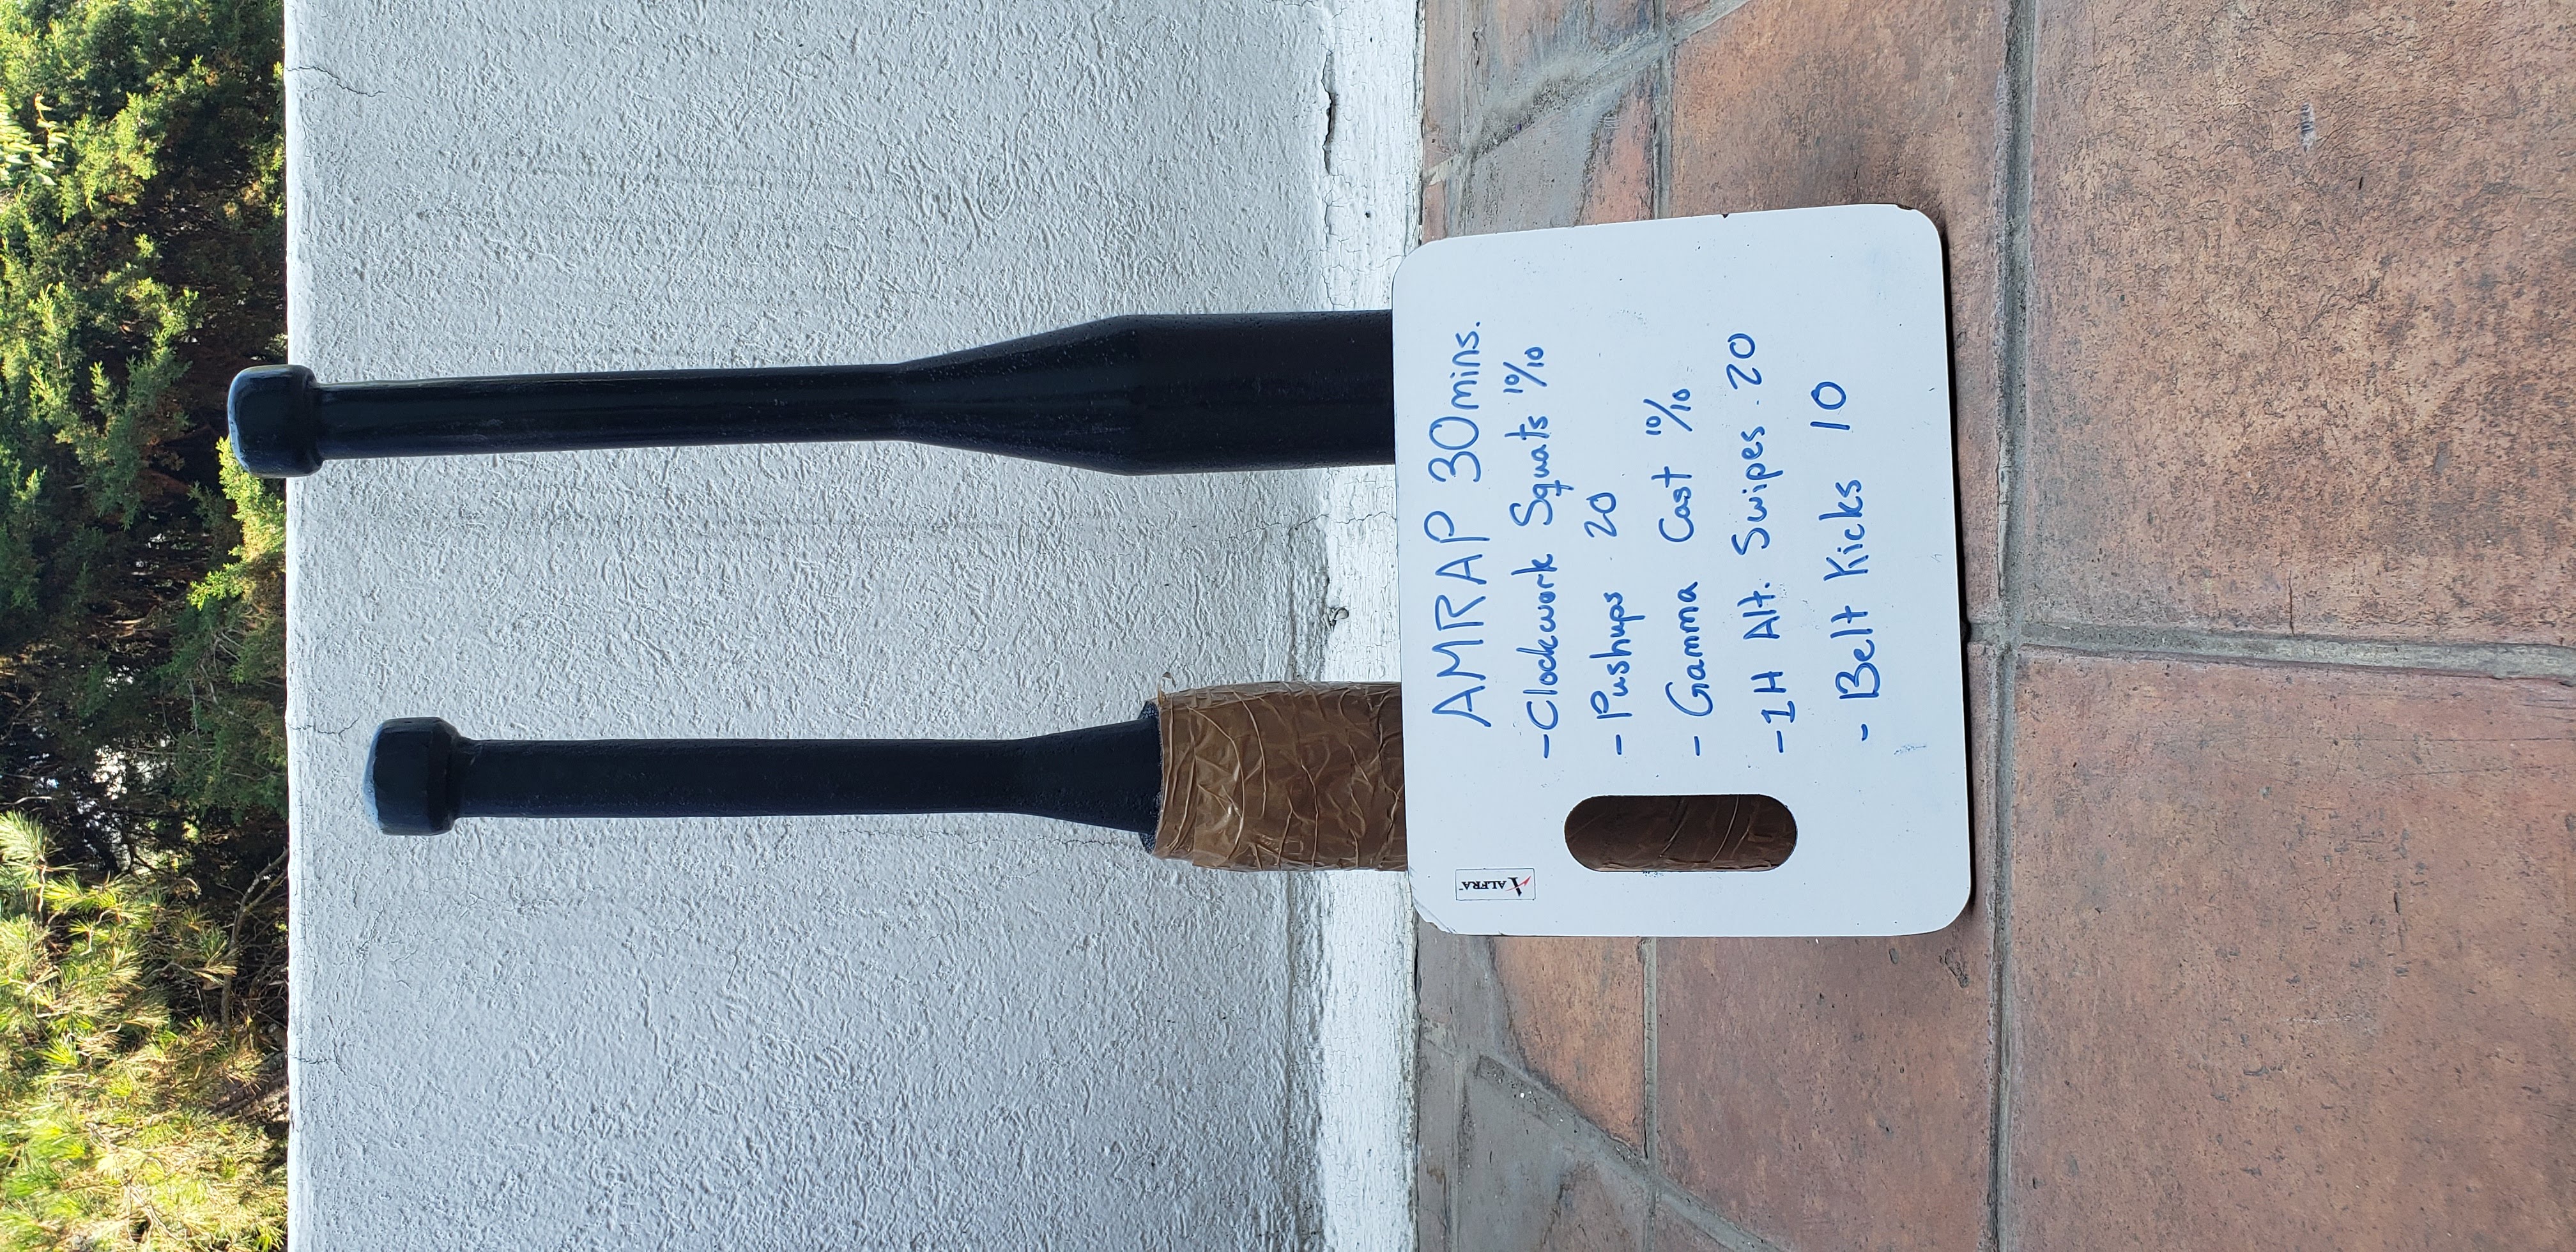 ALFRA
AMRAP 30mins.
-Clockwork Squats 10/10
- Pushups 20
- Gamma Cast 10/10
-1H Alt. Swipes 20
- Belt Kicks 10